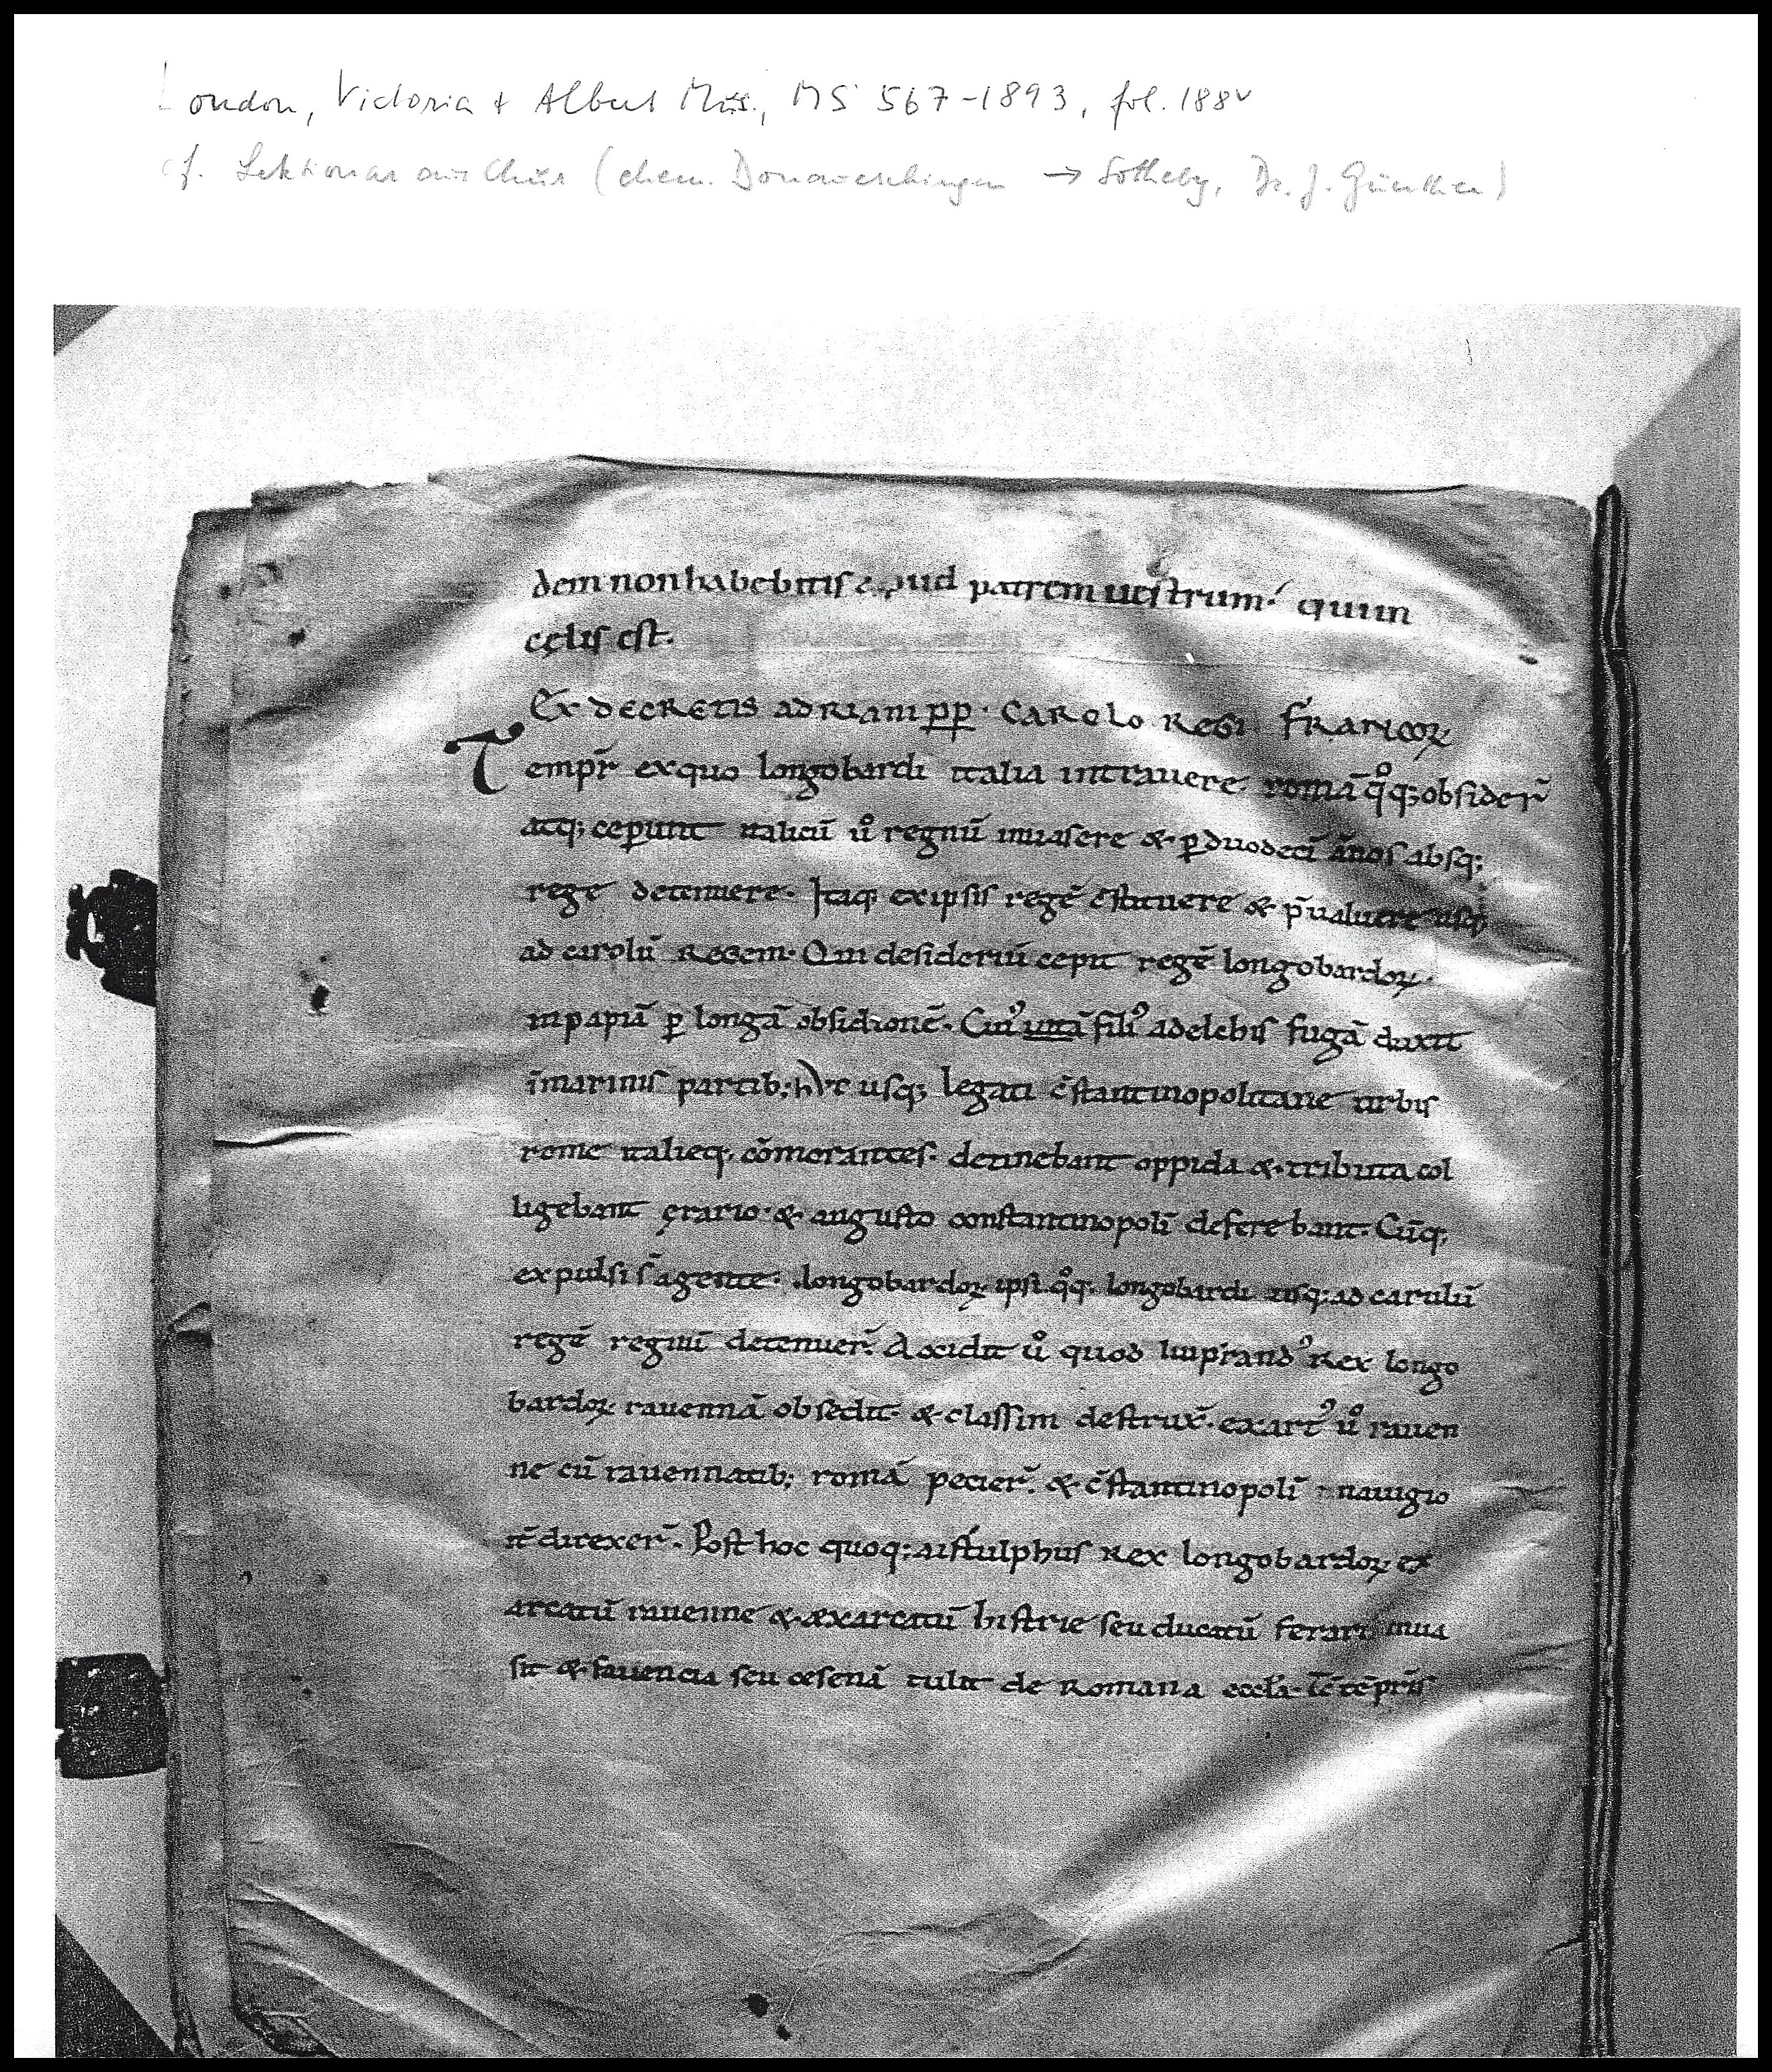 London, Victoria + Albert Mus., MS 567-1893, fol. 188v
cf. Lektionar aus Chur (ehem. Donaueschingen → Sotheby, Dr. J. Günther)
dem non habebitis apud patrem uestrum. qui in
cęlis est.
Ex decretis adriani pp. carolo regi francoꝝ
Tempr̄ ex quo longobardi italia intrauere. romā qͦq; obsider̄
atq; ceperunt italicū uͦ regnū inuasere & ꝑ duodecī annos absq;
rege detenuere. Itaq; ex ipsis regē c̄stituere & p̄ualuere usq;
ad carolū regem. Qui desideriū cepit regē longobardoꝝ.
in papiā ꝑ longā obsidionē. Cuiꝰ filiꝰ adelchis fugā duxit
ī marinis partib; usq; legati c̄stantinopolitane urbis
rome italieq; cōmorantes. detinebant oppida & tributa col
ligebant ęrario. & augusto constantinopolī deferebant. Cūq;
expulsi s̄ agente. longobardoꝝ ipsi qͦq; longobardi usq; ad carulū
regē regnū detenuer̄. Accidit uͦ quod liuprandꝰ rex longo
bardoꝝ rauennā obsedit. & classim destrux̄. exartꝰ uͦ rauen
ne cū rauennatib; romā petier̄. & c̄stantinopolī nauigio
direxer̄. Post hoc quoq; aistulphus rex longobardoꝝ ex
arcatū rauenne & exarcatū histrie seu ducatū ferari inua
sit & fauencia seu cesenā tulit de romana eccla.